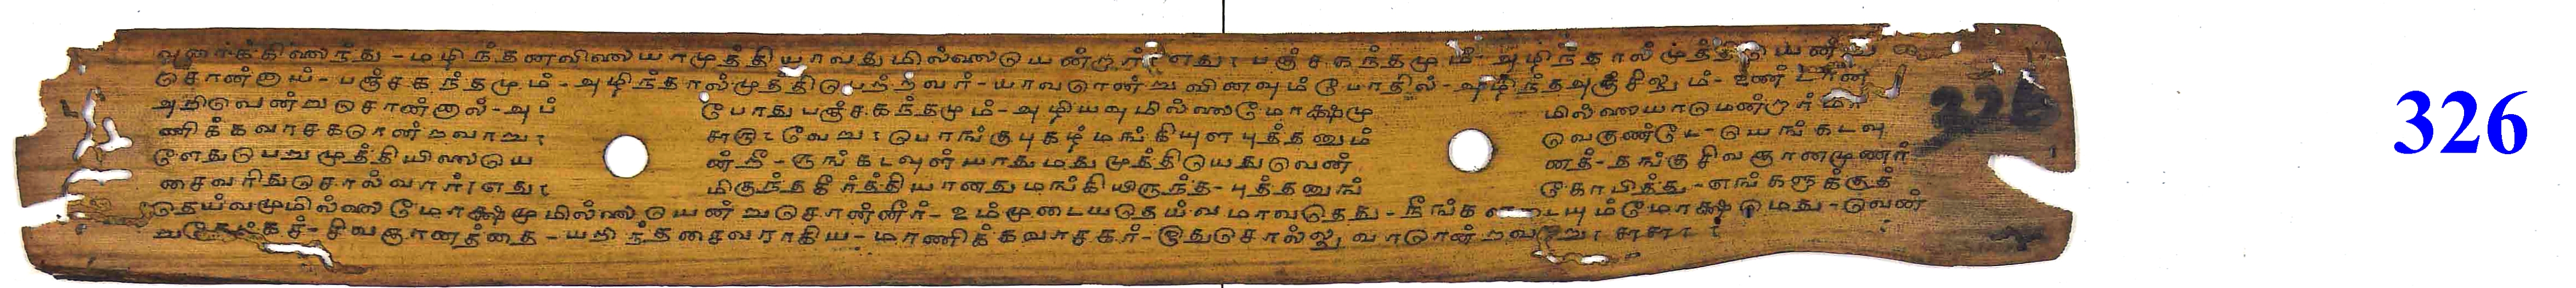 வுணர்க்கிலைந்து - மழிந்தனவிலையாமுத்தியாவதுமில்லையென்றர் எது; பஞ்சகந்தமும் - அழிந்தால்முத்தி யன்று
சொன்னாய் - பஞ்சகந்தமும் - அழிந்தால்முத்திபெற்றவர் - யாவரென்று வினவும்போதில் - அழிந்தஅஞ்சிலும் - உண்டான
அறிவென்று சொன்னால் - அப்போது பஞ்சகந்தமும் - அழியவுமில்லை மோக்ஷமுமில்லையாமென்றர் மா
ணிக்கவாசகரென்றவாறு; வேறு; பொங்குபுகழ் மங்கியுளபுத்தனும் வெகுண்டே - யெங்கடவு
ளேதுபெறுமுத்தியிலையென்றீ - ருங்கடவுள் யாதுமதுமுத்தியெதுவென்னத் - தங்கு சிவஞானமுணர்
சைவரிதுசொல்வார் எது; மிகுந்தகீர்த்தியானது மங்கியிருந்த - புத்தனுங் கோபித்து - எங்களுக்குத்
தெய்வமுமில்லை மோக்ஷமுமில்லை யென்று சொன்னீர் - உம்முடையதெய்வமாவதெது - நீங்கள டையும்மோக்ஷமெது - வென்
றுகேட்கச் - சிவஞானத்தை - யறிந்தசைவராகிய - மாணிக்கவாசகர் - இதுசொல்லுவாரென்றவாறு;
326